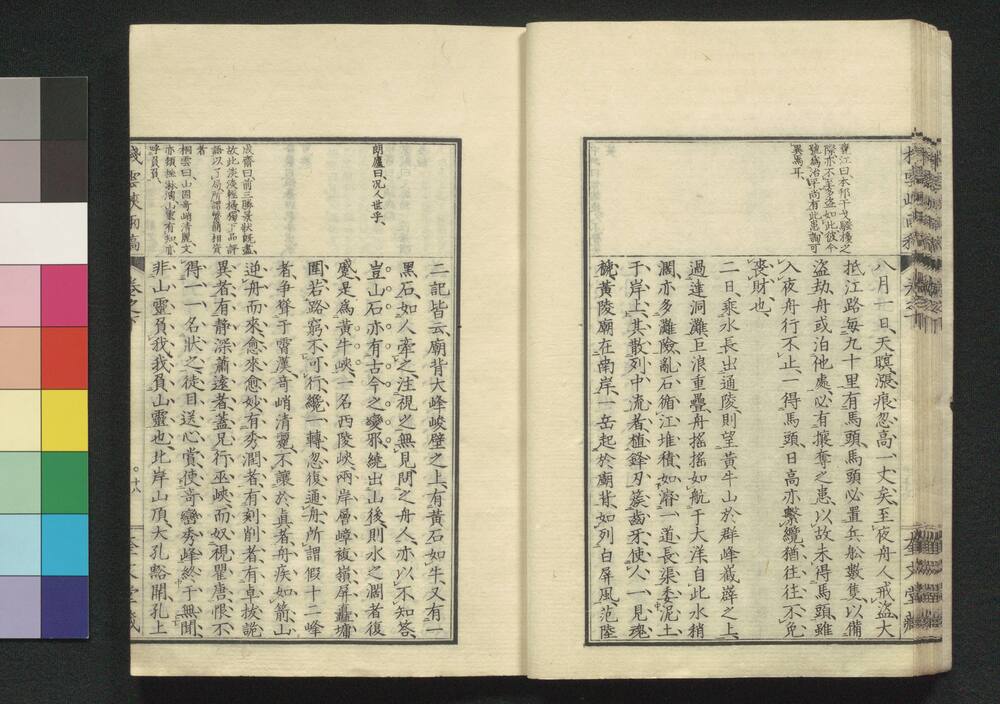 寶江曰、本邦干戈騷擾之
際、亦不至多盜如此、彼今
號爲治平、尚有此患、詢可
異焉耳、
八月一日、天暝、漲痕忽高一丈矣、至夜舟人戒盜、大
抵江路每九十里有馬頭、馬頭必置兵船數隻、以備
盜劫、舟或泊他處、必有攘奪之患、以故未得馬頭、雖
入夜舟行不止、一得馬頭、日高亦繫纜、猶往往不免
喪財也、
二日乘水長出通陵、則望黃牛山於群峰巀嶭之上、
過達洞灘、巨浪重疊、舟搖搖如航于大洋、自此水稍
濶、亦多灘險、亂石循江堆積、如齊一道長渠、委泥土
于岸上、其散列中流者、植鋒刃、簇齒牙、使人一見魂
褫、黃陵廟在南岸、一岳起於廟背、如列白屏風、范陸
二記皆云、廟背大峰峻壁之上、有黃石如牛、又有一
黑石、如人牽之、注視之無見、問之舟人、亦以不知答、
豈山石亦有古今之變邪、繞出山後、則水之濶者復
蹙、是爲黃牛峽、一名西陵峽、兩岸層嶂複嶺、屏矗墉
圍、若路窮不可行、纜一轉、忽復通舟、所謂假十二峰
者、爭聳于霄漢、奇峭清麗、不讓於眞者、舟疾如箭、山
逆舟而來、愈來愈妙、有秀潤者、有刻削者、有卓拔詭
異者、有靜深蕭遠者、蓋兄行巫峽、而奴視瞿唐、恨不
得一一名狀之、徒目送心賞、使奇巒秀峰終于無聞、
非山靈負我、我負山靈也、北岸山頂、大孔豁開、孔上
朗廬曰、况人世乎、
成齋曰、前三勝景狀既盡、
故此淡淡輕描、獨下品評
語以了局、所謂繁簡相資
者
桐雲曰、山固奇峭清麗、文
亦穎挫淋漓、山靈有知、當
呼負負、
棧雲峽雨稿
卷之下
十八
奎文堂藏